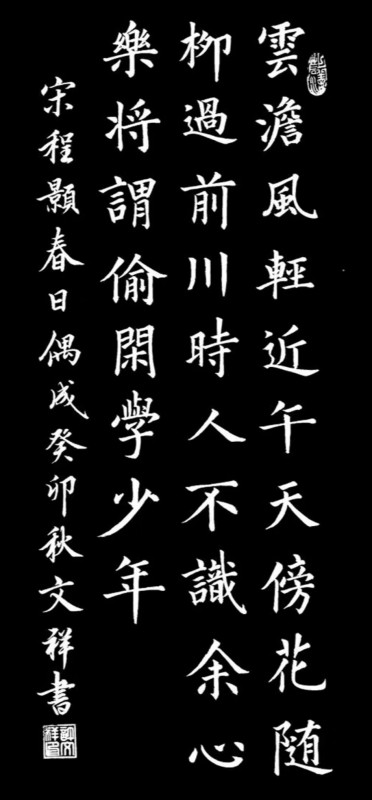 雲澹風輕近午天傍花隨
柳過前川時人不識余心
樂將謂偷閑學少年
宋程顥春日偶成癸卯秋文祥書